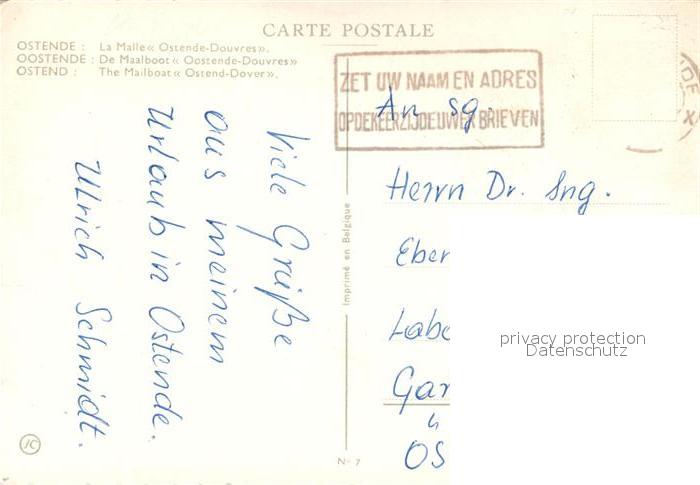 CARTE POSTALE
OSTENDE : La Malle « Ostende-Douvres ».
OOSTENDE : De Maalboot « Oostende-Douvres »
OSTEND : The Mailboat « Ostend-Dover ».
ZET UW NAAM EN ADRES
OP DE KEERZIJDE UWER BRIEVEN
An Sg.
Herrn Dr. Ing.
Eber
Labo
Gar
"
OS
privacy protection
Datenschutz
Viele Grüße
aus meinem
Urlaub in Ostende.
Ulrich Schmidt.
Imprimé en Belgique
N° 7
JC